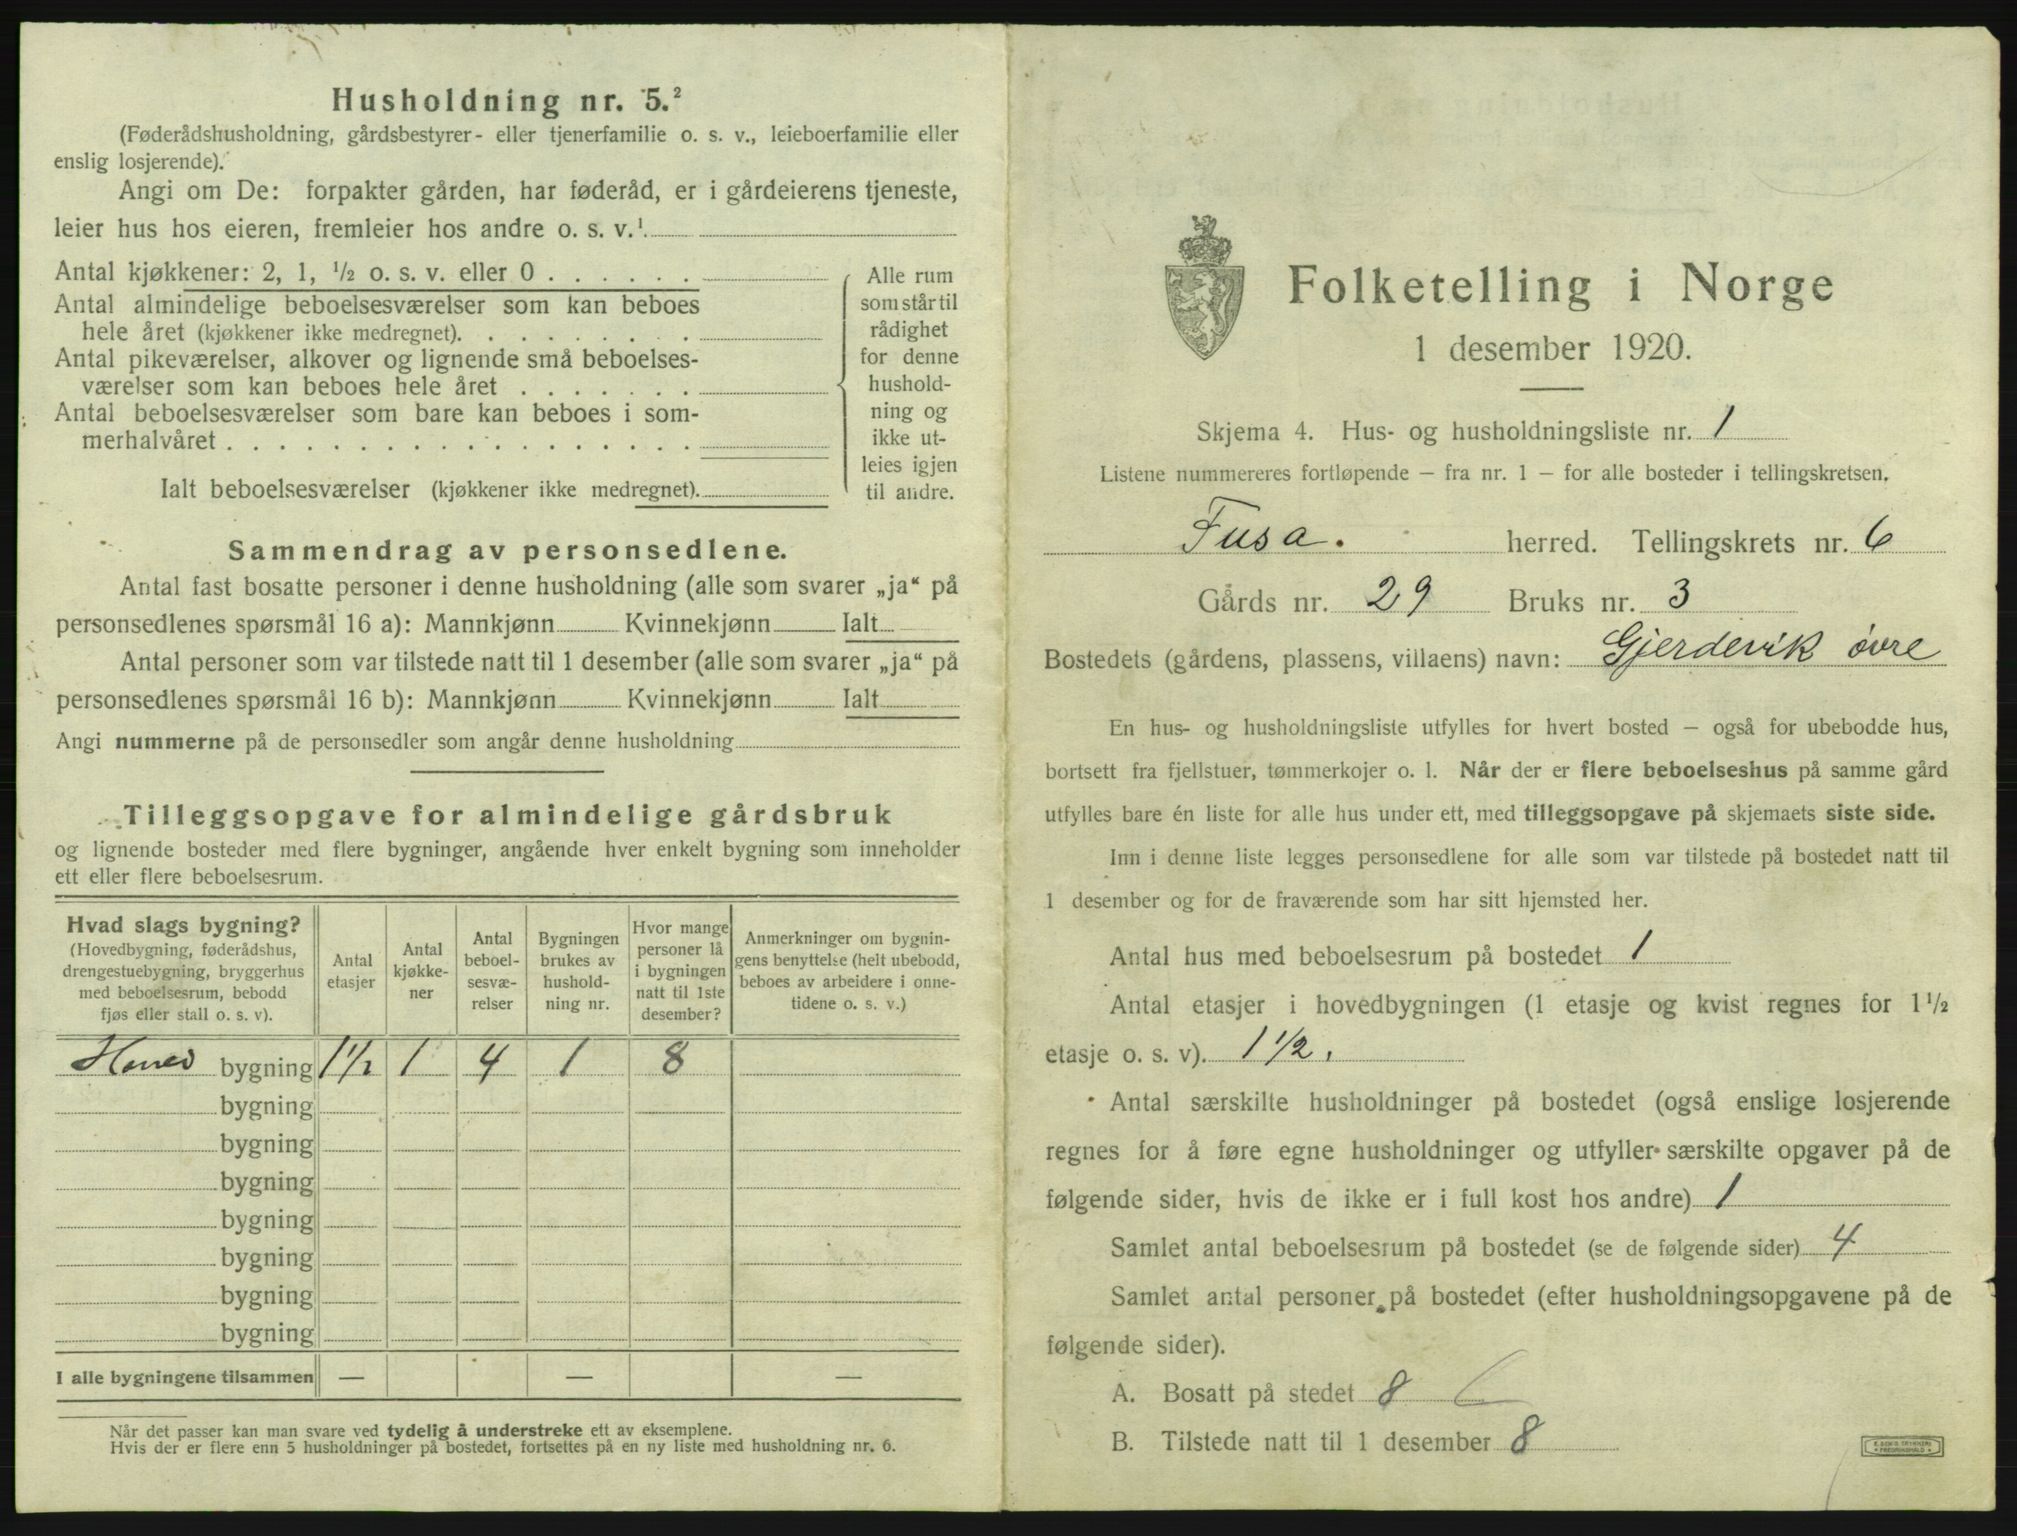 Husholdning nr. 5.²
(Føderådshusholdning, gårdsbestyrer- eller tjenerfamilie o. s. v., leieboerfamilie eller
enslig losjerende).
Angi om De: forpakter gården, har føderåd, er i gårdeierens tjeneste,
leier hus hos eieren, fremleier hos andre o. s. v.¹
Antal kjøkkener: 2, 1, ½ o. s. v. eller 0 . . . . . .
Antal almindelige beboelsesværelser som kan beboes
hele året (kjøkkener ikke medregnet). . . . . . . . .
Antal pikeværelser, alkover og lignende små beboelses-
værelser som kan beboes hele året . . . . . . .
Antal beboelsesværelser som bare kan beboes i som-
merhalvåret . . . . . . . . . . . . . . . . . .
Ialt beboelsesværelser (kjøkkener ikke medregnet).
Alle rum
som står til
rådighet
for denne
hushold-
ning og
ikke ut-
leies igjen
til andre.
Sammendrag av personsedlene.
Antal fast bosatte personer i denne husholdning (alle som svarer „ja“ på
personsedlenes spørsmål 16 a): Mannkjønn Kvinnekjønn Ialt
Antal personer som var tilstede natt til 1 desember (alle som svarer „ja“ på
personsedlenes spørsmål 16 b): Mannkjønn Kvinnekjønn Ialt
Angi nummerne på de personsedler som angår denne husholdning
Tilleggsopgave for almindelige gårdsbruk
og lignende bosteder med flere bygninger, angående hver enkelt bygning som inneholder
ett eller flere beboelsesrum.
Hvad slags bygning?
(Hovedbygning, føderådshus,
drengestuebygning, bryggerhus
med beboelsesrum, bebodd
fjøs eller stall o. s. v).
Antal
etasjer
Antal
kjøkke-
ner
Antal
beboel-
sesvæ-
relser
Bygningen
brukes av
hushold-
ning nr.
Hvor mange
personer lå
i bygningen
natt til 1ste
desember?
Anmerkninger om bygnin-
gens benyttelse (helt ubebodd,
beboes av arbeidere i onne-
tidene o. s. v.)
Hoved bygning 1½ 1 4 1 8
bygning
bygning
bygning
bygning
bygning
bygning
bygning
I alle bygningene tilsammen — — —
Når det passer kan man svare ved tydelig å understreke ett av eksemplene.
Hvis der er flere enn 5 husholdninger på bostedet, fortsettes på en ny liste med husholdning nr. 6.
Folketelling i Norge
1 desember 1920.
Skjema 4. Hus- og husholdningsliste nr. 1
Listene nummereres fortløpende – fra nr. 1 – for alle bosteder i tellingskretsen.
Fusa. herred. Tellingskrets nr. 6
Gårds nr. 29 Bruks nr. 3
Bostedets (gårdens, plassens, villaens) navn: Gjerdevik øvre
En hus- og husholdningsliste utfylles for hvert bosted – også for ubebodde hus,
bortsett fra fjellstuer, tømmerkojer o. l. Når der er flere beboelseshus på samme gård
utfylles bare én liste for alle hus under ett, med tilleggsopgave på skjemaets siste side.
Inn i denne liste legges personsedlene for alle som var tilstede på bostedet natt til
1 desember og for de fraværende som har sitt hjemsted her.
Antal hus med beboelsesrum på bostedet 1
Antal etasjer i hovedbygningen (1 etasje og kvist regnes for 1½
etasje o. s. v). 1½.
Antal særskilte husholdninger på bostedet (også enslige losjerende
regnes for å føre egne husholdninger og utfyller særskilte opgaver på de
følgende sider, hvis de ikke er i full kost hos andre) 1
Samlet antal beboelsesrum på bostedet (se de følgende sider) 4
Samlet antal personer på bostedet (efter husholdningsopgavene på de
følgende sider).
A. Bosatt på stedet 8
B. Tilstede natt til 1 desember 8